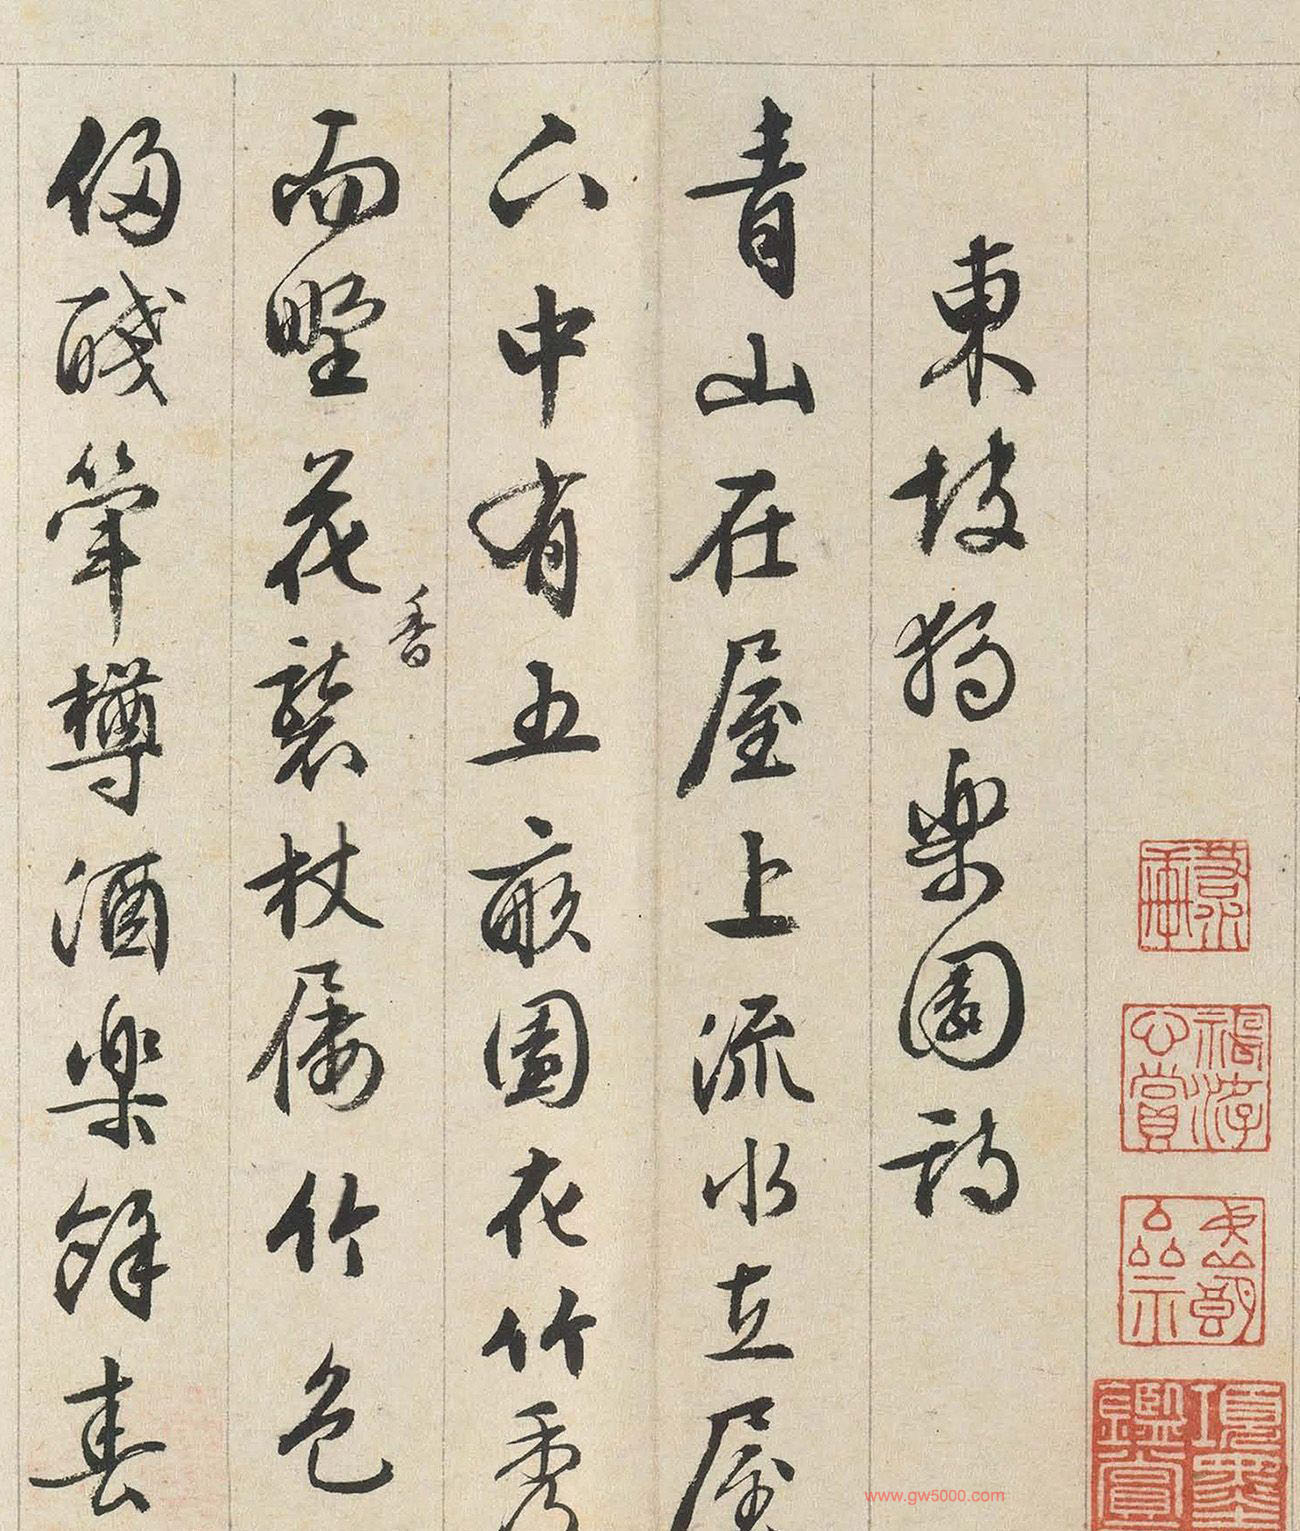 東坡獨樂園詩
青山在屋上流水立屋
下中有五畝園花竹秀
而野花襲杖屨竹色
香
侵醆筆樽酒樂餘春
www.gw5000.com